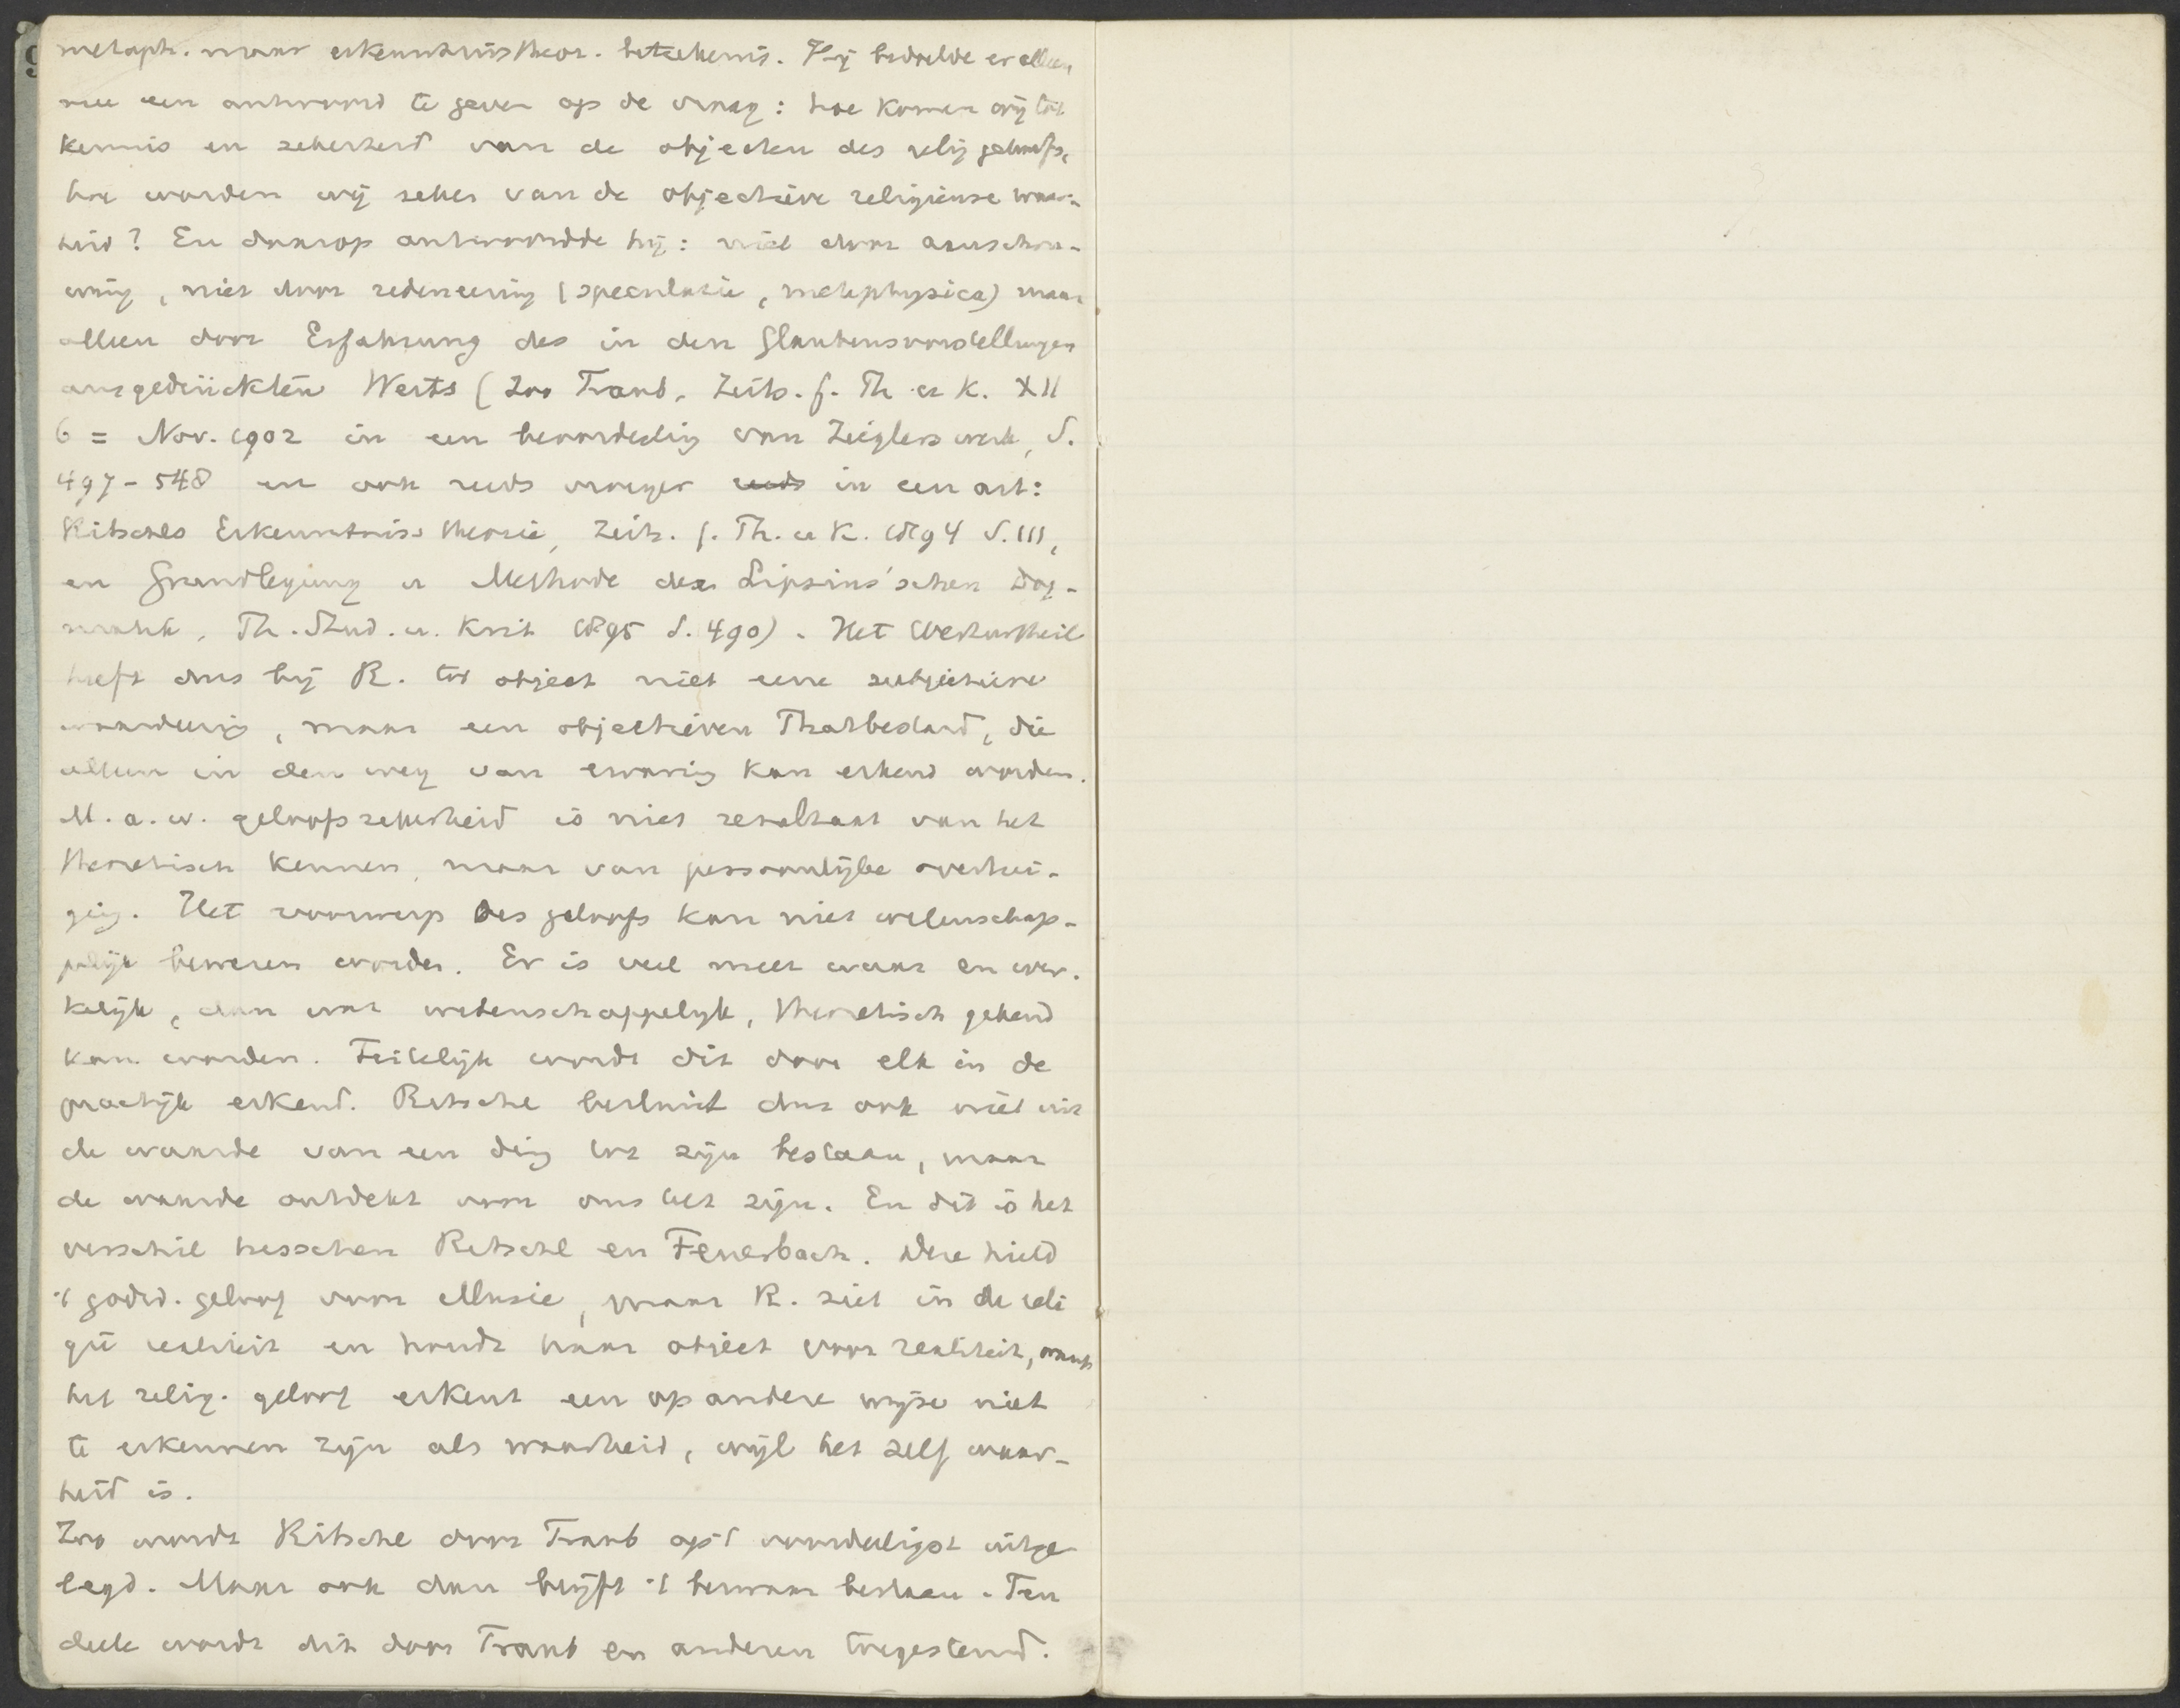 metaph. maar erkenntnistheor. beteekenis. Hij bedoelde er alleen
mee een antwoord te geven op de vraag: hoe komen wij tot
kennis en zekerheid van de objecten des relig geloofs,
hoe worden wij zeker van de objectieve religieuse waar-
heid? En daarop antwoordde hij: niet door aanschou-
wing, niet door redeneering (speculatie, metaphysica) maar
alleen door Erfahrung des in den Glaubensvorstellungen
ausgedrückten Werts (Zoo Traub, Zeits. f. Th u K. XII
6 = Nov. 1902 in een beoordeling van Zieglers werk, S.
497-548 en ook reeds vroeger reeds in een art:
Ritschls Erkenntnistheorie, Zeits. f. Th. u K. 1894 S. 111,
en Grundlegung u Methode der Lipsius'schen Dog-
matik, Th. Stud. u. Krit 1895 S. 490). Het Werturtheil
heeft dus bij R. tot object niet eene subjectieve
waardeering, maar een objectieven Thatbestand, die
alleen in den weg van ervaring kan erkend worden.
M.a.w. geloofszekerheid is niet resultaat van het
theoretisch kennen, maar van persoonlijke overtui-
ging. Het voorwerp des geloofs kan niet wetenschap-
pelijk bewezen worden. Er is veel meer waar en wer-
kelijk, dan wat wetenschappelijk, theoretisch gekend
kan worden. Feitelijk wordt dit door elk in de
practijk erkend. Ritschl besluit dus ook niet uit
de waarde van een ding tot zijn bestaan, maar
de waarde ontdekt voor ons het zijn. En dit is het
verschil tusschen Ritschl en Feuerbach. Deze hield
't godsd. geloof voor illusie, maar R. ziet in de reli
gie realiteit en houdt haar object voor realiteit, want
het relig. geloof erkent een op andere wijze niet
te erkennen zijn als waarheid, wijl het zelf waar-
heid is.
Zoo wordt Ritschl door Traub op 't voordeeligst uitge
legd. Maar ook dan blijft 't bezwaar bestaan. Ten
deele wordt dit door Traub en anderen toegestemd.